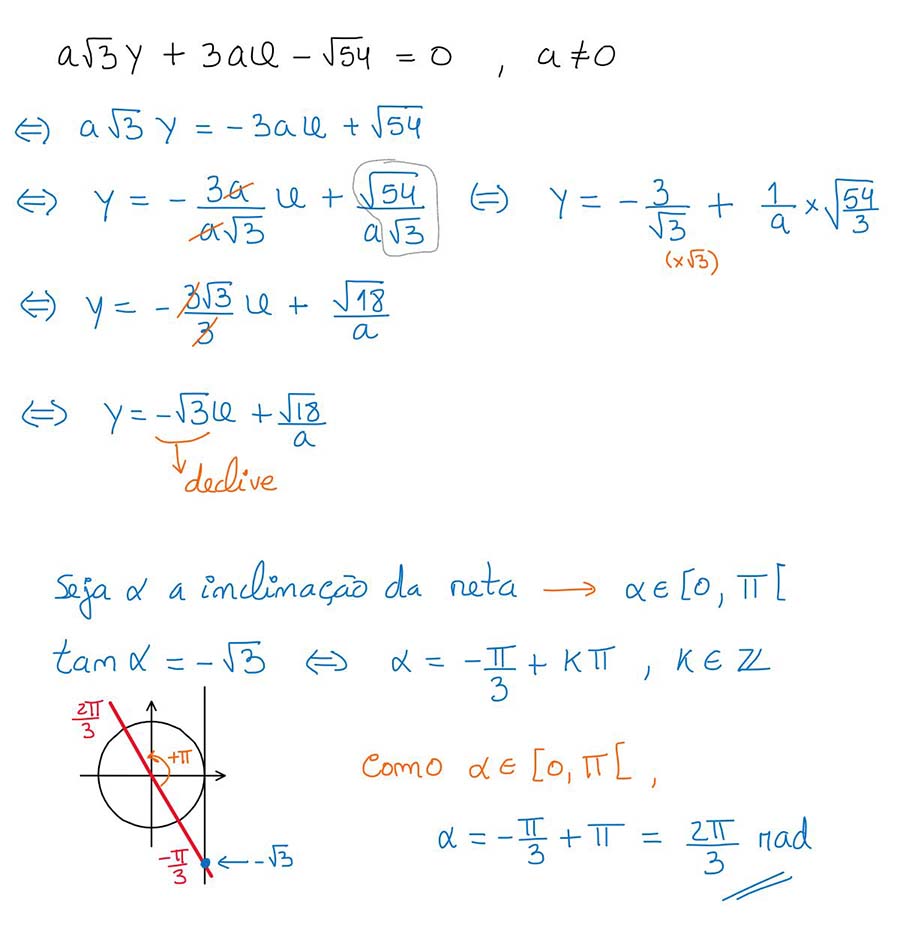 a√3 y + 3ax - √54 = 0 , a ≠ 0
⇔ a√3 y = -3ax + √54
⇔ y = - 3a/a√3 x + √54/a√3 ⇔ y = - 3/√3 + 1/a × √54/3
(×√3)
⇔ y = - 3√3/3 x + √18/a
⇔ y = -√3x + √18/a
declive
Seja α a inclinação da reta → α ∈ [0, π[
tan α = -√3 ⇔ α = -π/3 + kπ , k ∈ ℤ
2π/3
+π
Como α ∈ [0, π[ ,
α = -π/3 + π = 2π/3 rad
-π/3 ← -√3